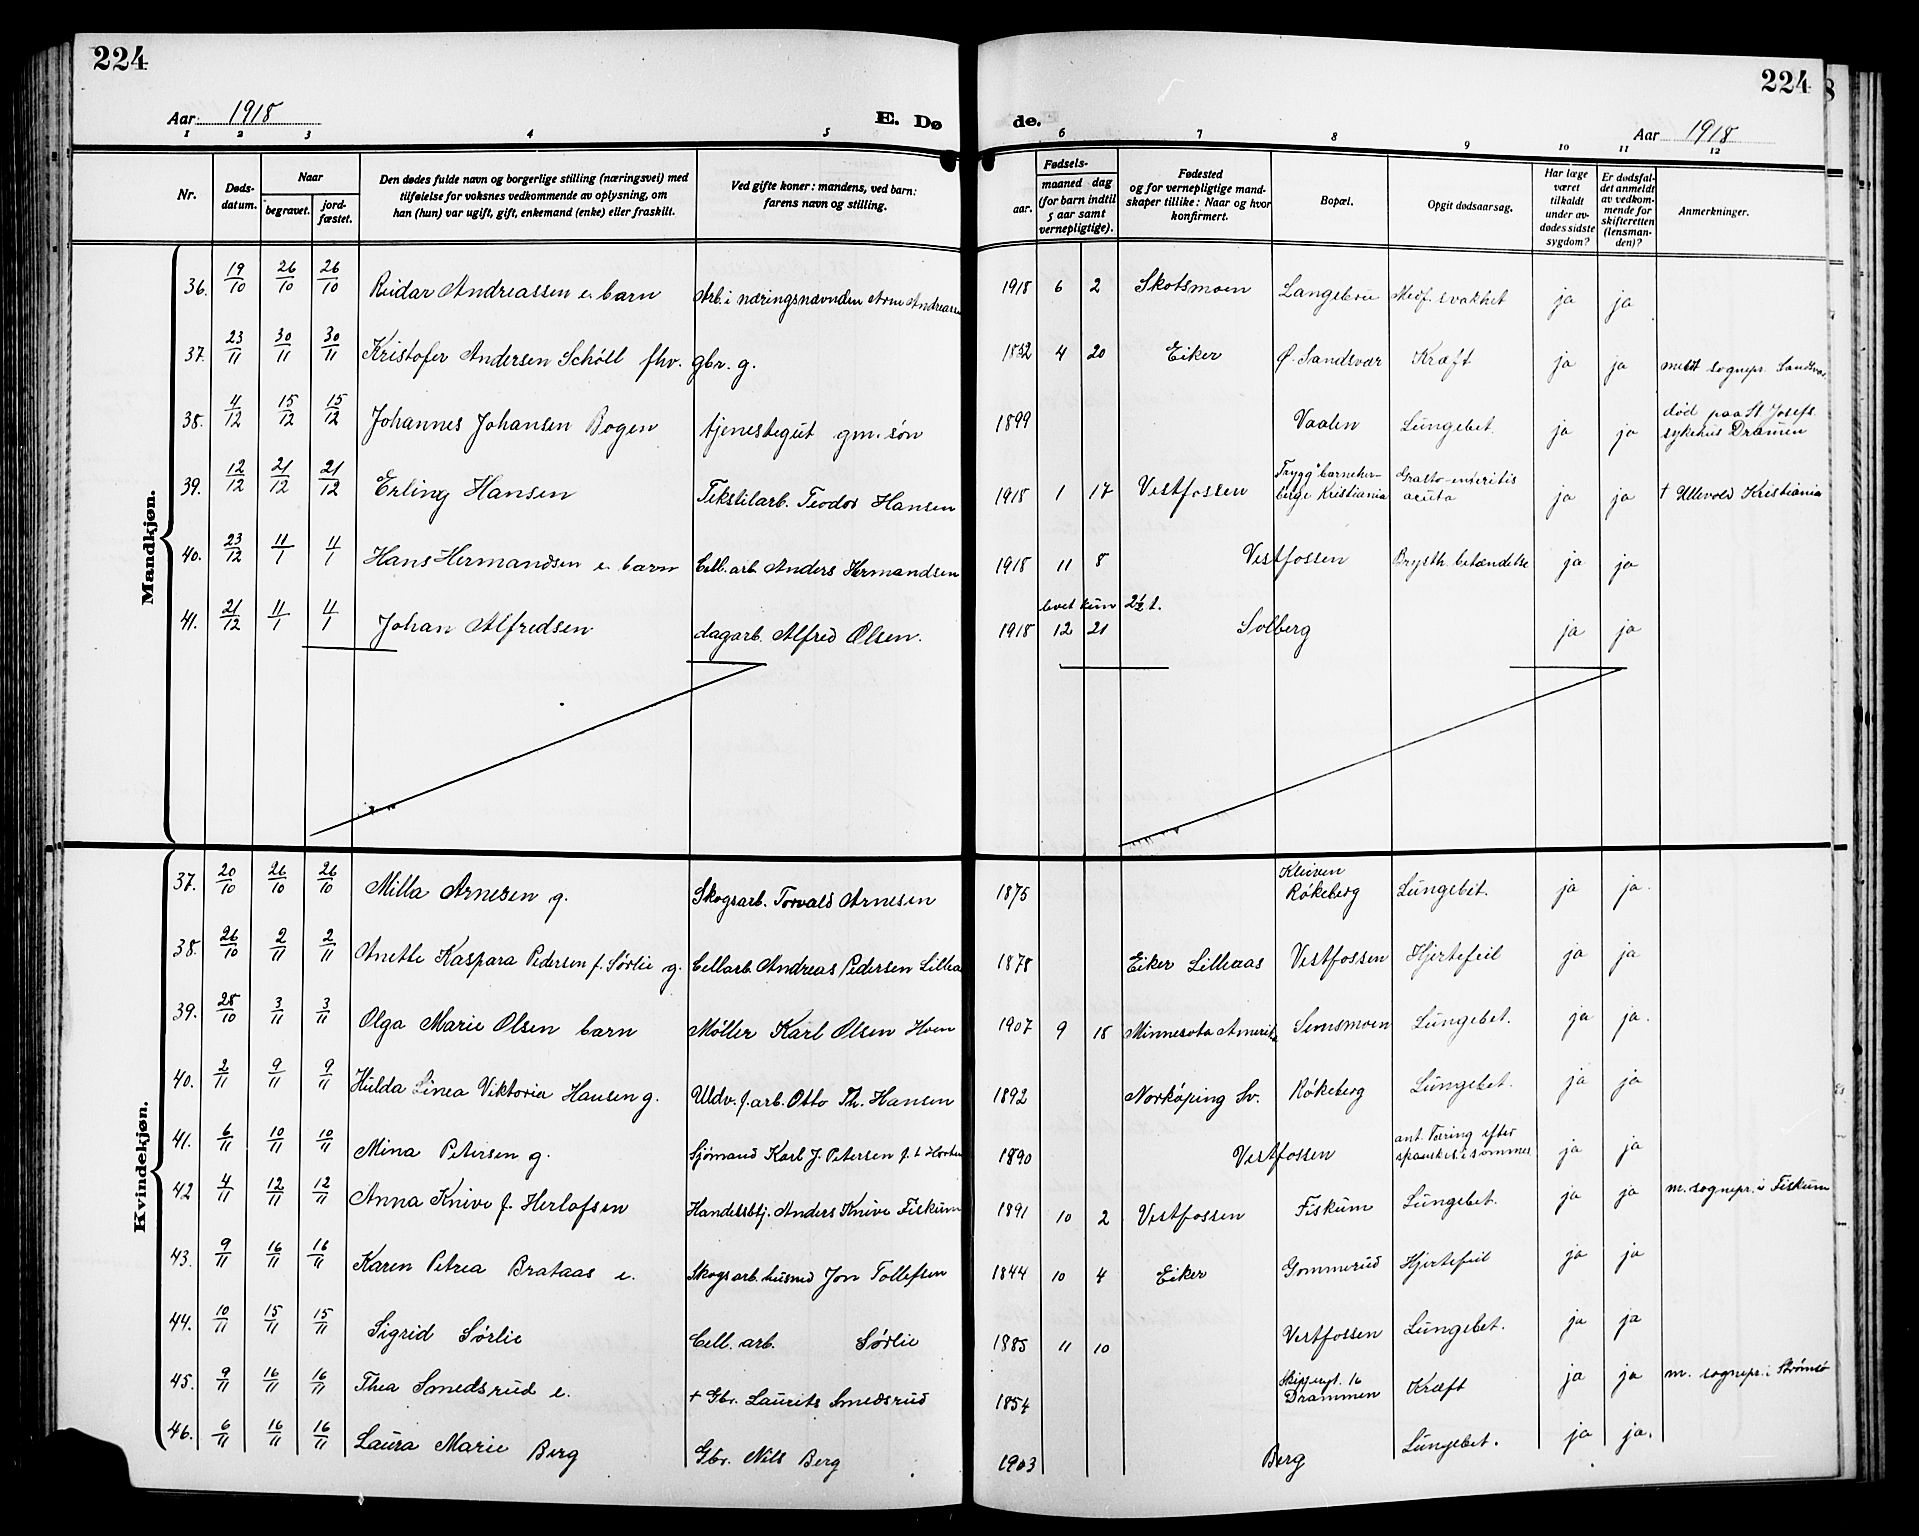 224
224
Aar 1918
E. Dø
de.
Aar 1918
1 2 3 4 5 6 7 8 9 10 11 12
Nr.
Døds-
datum.
Naar
begravet.
jord-
fæstet.
Den dødes fulde navn og borgerlige stilling (næringsvei) med
tilføielse for voksnes vedkommende av oplysning, om
han (hun) var ugift, gift, enkemand (enke) eller fraskilt.
Ved gifte koner: mandens, ved barn:
farens navn og stilling.
Fødsels-
aar.
maaned dag
(for barn indtil
5 aar samt
vernepligtige).
Fødested
og for vernepligtige mand-
skaper tillike: Naar og hvor
konfirmert.
Bopæl.
Opgit dødsaarsag.
Har læge
været
tilkaldt
under av-
dødes sidste
sygdom?
Er dødsfal-
det anmeldt
av vedkom-
mende for
skifteretten
(lensman-
den)?
Anmerkninger.
Mandkjøn.
36. 19/10 26/10 26/10 Reidar Andreassen e. barn Arb. i næringsnævnden Arne Andreassen 1918 6 2 Skotsmoen Langebru Medf. svakhet ja ja
37. 23/11 30/11 30/11 Kristofer Andersen Schöll fhv. gbr. g. 1852 4 20 Eiker Ø. Sandsvær Kræft ja ja meldt sognepr. Sandsvær
38. 4/12 15/12 15/12 Johannes Johansen Bogen tjenestegut gm. søn 1899 Vaalen Lungebet. ja ja død paa St. Josefs
sykehus Drammen
39. 12/12 21/12 21/12 Erling Hansen Tekstilarb. Teodor Hansen 1918 1 17 Vestfossen "Trygg" barneher-
berge Kristiania Grasto-enteritis
acuta ja ja † Ullevold Kristiania
40. 23/12 11/1 11/1 Hans Hermandsen e. barn Cell. arb. Anders Hermandsen 1918 11 8 Vestfossen Brysth. betændelse ja ja
levet kun 2½ t.
41. 21/12 11/1 11/1 Johan Alfredsen dagarb. Alfred Olsen. 1918 12 21 Solberg ja ja
Kvindekjøn.
37. 20/10 26/10 26/10 Milla Arnesen g. Skogsarb. Torvald Arnesen 1875 Kleiven
Røkeberg Lungebet. ja ja.
38. 26/10 2/11 2/11 Anette Kaspara Pedersen f. Sørlie g. Cellarb. Andreas Pedersen Lilleaa 1878 Eiker Lilleaas Vestfossen Hjertefeil ja ja
39. 28/10 3/11 3/11 Olga Marie Olsen barn Møller Karl Olsen Hoen 1907 9 18 Minnesota Amerika Semsmoen Lungebet. ja ja.
40. 2/11 9/11 9/11 Hulda Linea Viktoria Hansen g. Uldv. f. arb. Otto Th. Hansen 1892 Norköping Sv. Røkeberg Lungebet. ja ja
41. 6/11 10/11 10/11 Mina Petersen g. Sjømand Karl J. Petersen f. t. Horten 1890 Vestfossen ant. Tæring efter
spanskes. i sommer ja ja
42 4/11 12/11 12/11 Anna Knive f. Herlofsen Handelsbtj. Anders Knive Fiskum 1891 10 2 Vestfossen Fiskum Lungebet. ja ja m. sognepr. i Fiskum
43. 9/11 16/11 16/11 Karen Petrea Brataas e. Skogsarb. husmd Jon Tollefsen 1844 10 4 Eiker Gommerud Hjertefeil ja ja
44. 10/11 15/11 15/11 Sigrid Sørlie Cell. arb. Sørlie 1885 11 10 Vestfossen Lungebet. ja ja
45. 9/11 16/11 16/11 Thea Smedsrud e. + Gbr. Laurits Smedsrud 1854 16
Drammen Kræft ja ja m. sognepr. i Strømsø
46. 6/11 16/11 16/11 Laura Marie Berg Gbr. Nils Berg 1903 Berg Lungebet. ja ja.